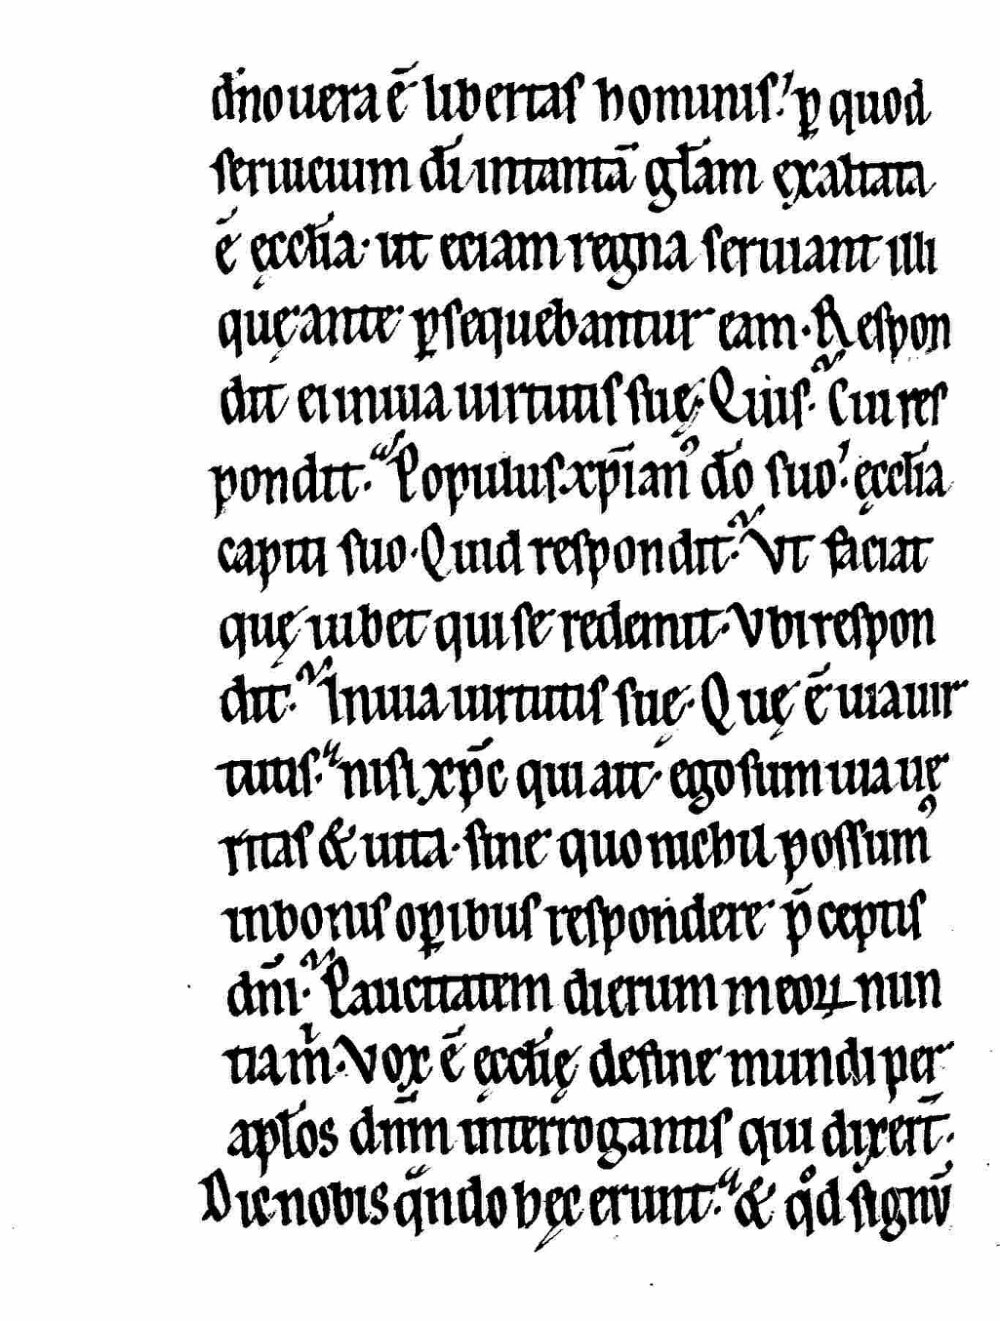 dn̄o uera ē libertas hominis.' ꝑ quod
seruicium dī in tantā gl̄am exaltata
ē ęccl̄ia. ut eciam regna seruiant illi
quę ante ꝑsequebantur eam. Respon
dit ei in uia uirtutis suę. Quis? Cui res
pondit? Populus xp̄ianꝰ dō suo.' ęccl̄ia
capiti suo. Quid respondit? Vt faciat
quę iubet qui se redemit. Vbi respon
dit? In uia uirtutis suę. Quę ē uia uir
tutis? nisi xp̄c qui ait. ego sum uia ue
ritas & uita. sine quo nichil possumꝰ
in bonis oꝑibus respondere p̄ceptis
dn̄i. Paucitatem dierum meoꝝ nun
tia m̍. Vox ē ęccl̄ię de fine mundi per
apl̄os dn̄m interrogantis qui dixer̄t.
Dic nobis qn̄do hęc erunt? & qͦd signū